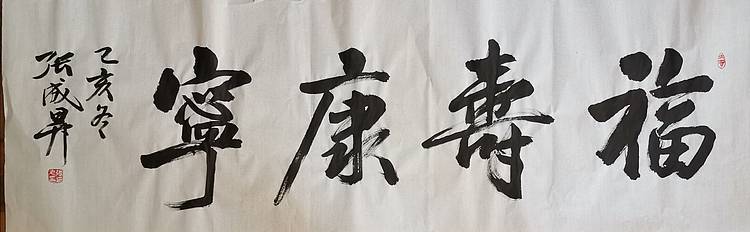 福壽康寧
乙亥冬
張成昇